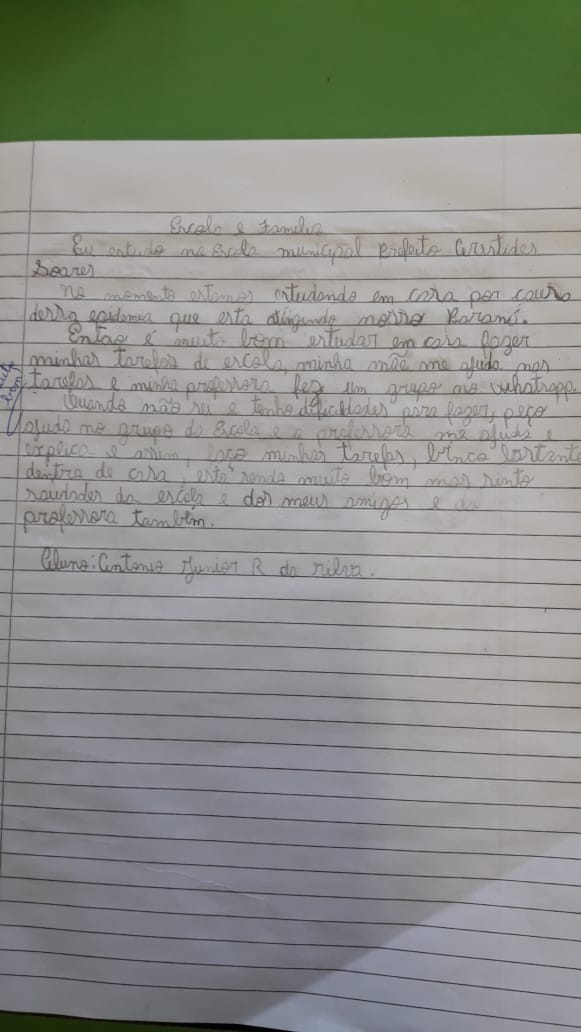 Escola e Familia
Eu estudo na Escola municipal Prefeito Aristides
Soares
No momento estamos estudando em casa por causa
dessa epidemia que esta atingindo nosso Paraná.
Entao é muito bom estudar em casa fazer
minhas tarefas de escola, minha mãe me ajuda nas
tarefas e minha professora fez um grupo no whatsapp.
Quando não sei e tenho dificuldades para fazer, peço
ajuda no grupo da Escola e a professora me ajuda e
explica e assim, faço minhas tarefas, brinco bastante
dentro de casa, está sendo muito bom mas sinto
saudades da escola e dos meus amigos e da
professora também.
Aluno: Antonio Junior R da silva.